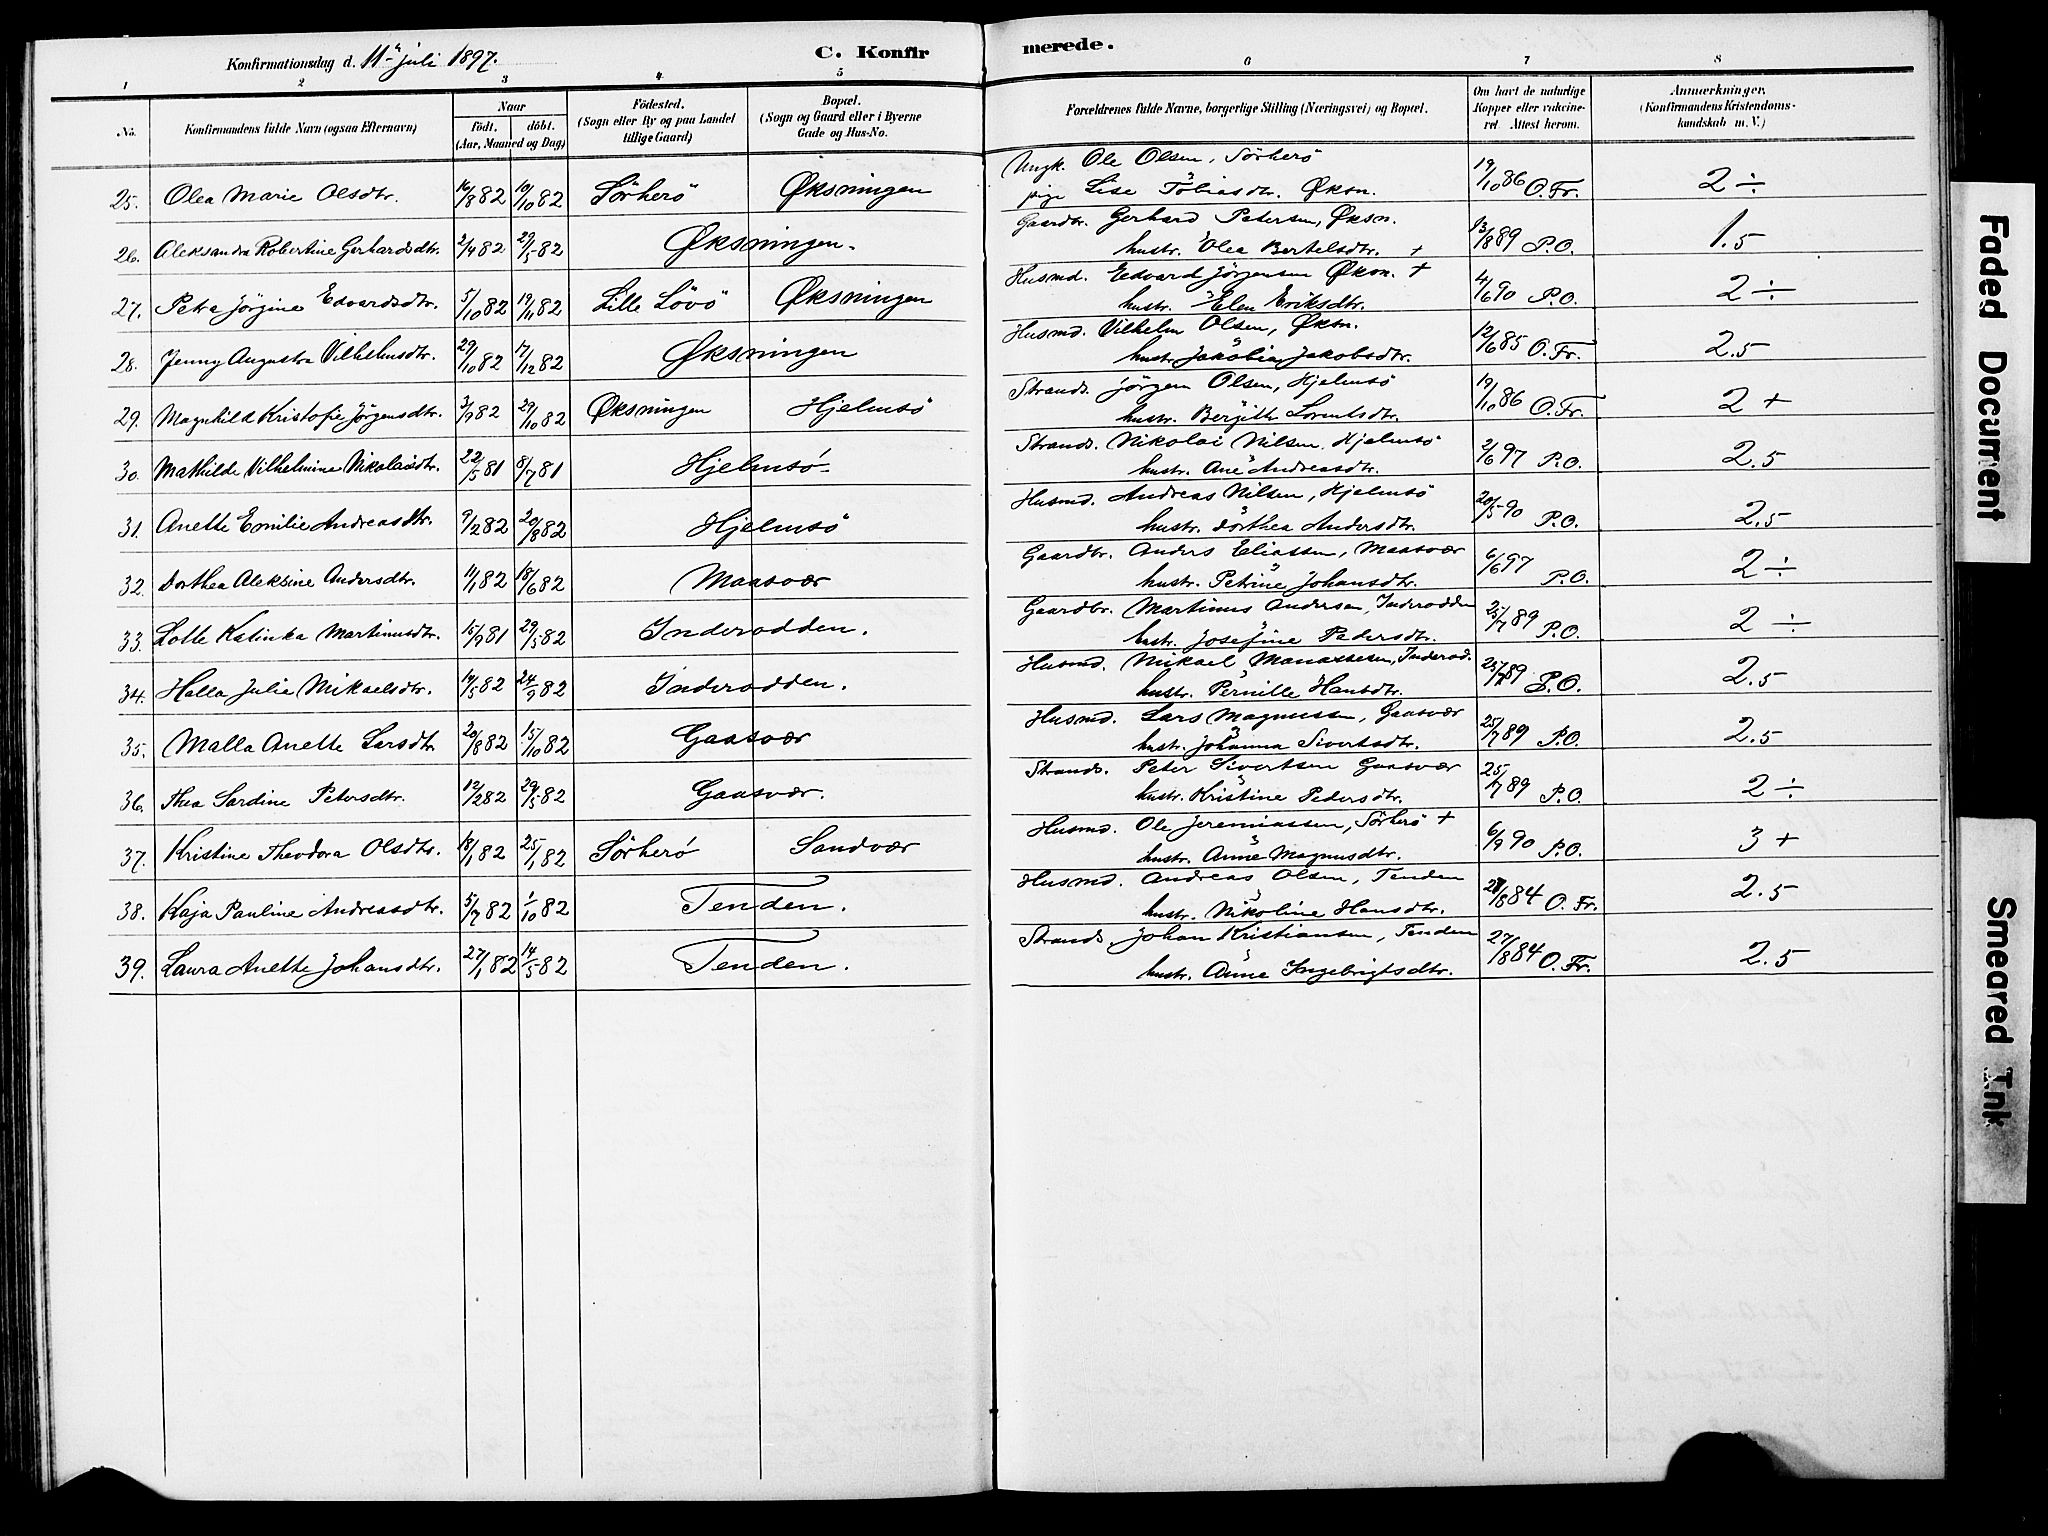 Konfirmationsdag d. 11te juli 1897.
C. Konfir merede.
1 2 3 4 5 6 7 8
No. Konfirmandens fulde Navn (ogsaa Efternavn) Naar födt. döbt. (Aar, Maaned og Dag) Födested. (Sogn eller By og paa Landet tillige Gaard) Bopæl. (Sogn og Gaard eller i Byerne Gade og Hus-No. Forældrenes fulde Navne, borgerlige Stilling (Næringsvei) og Bopæl. Om havt de naturlige Kopper eller vakcineret. Attest herom. Anmærkninger. (Konfirmandens Kristendomskundskab m. V.)
25. Olea Marie Olsdtr. 16/8 82 19/10 82 Sörherö Öksningen Ungk. Ole Olsen, Sörherö 19/10 86 O.Fr. 2 ÷
pige Lise Tobiasdtr. Øksn.
26. Aleksandra Robertine Gerhardsdtr. 2/4 82 29/5 82 Øksningen. Gaardbr. Gerhard Petersen, Øksn. 13/8 89 P.O. 1.5
hustr. Olea Bertelsdtr. +
27. Petra Jörgine Edvardsdtr. 5/10 82 19/11 82 Lille Lövö Øksningen Husmd. Edvard Jörgensen Øksn. + 4/6 90 P.O. 2 ÷
hustr. Elen Eriksdtr.
28. Jenny Augusta Vilhelmsdtr. 29/10 82 17/12 82 Øksningen Husmd. Vilhelm Olsen, Øksn. 12/6 85 O.Fr. 2.5
hustr. Jakobia Jakobsdtr.
29. Magnhild Kristofie Jörgensdtr. 3/9 82 29/10 82 Øksningen Hjelmsö Strands. Jörgen Olsen, Hjelmsö 19/10 86 O.Fr. 2 +
hustr. Bergitte Lorentsdtr.
30. Mathilde Vilhelmine Nikolaisdtr. 22/5 81 8/7 81 Hjelmsö Strands. Nikolai Nilsen, Hjelmsö 2/6 97 P.O. 2.5
hustr. Ane Andreasdtr.
31. Anette Emilie Andreasdtr. 9/2 82 20/8 82 Hjelmsö Husmd. Andreas Nilsen, Hjelmsö 20/5 90 P.O. 2.5
hustr. Dorthea Andersdtr.
32. Dorthea Aleksine Andersdtr. 11/1 82 18/6 82 Maasvær Gaardbr. Anders Eliassen, Maasvær 6/6 97 P.O. 2 ÷
hustr. Petrine Johansdtr.
33. Lotte Katinka Martinusdtr. 15/9 81 29/5 82 Inderodden. Gaardbr. Martinus Andersen, Inderodden 25/7 89 P.O. 2 ÷
hustr. Josefine Pedersdtr.
34. Halla Julie Mikaelsdtr. 14/5 82 24/9 82 Inderodden. Husmd. Mikael Manassesen, Inderod. 25/7 89 P.O. 2.5
hustr. Pernille Hansdtr.
35. Malla Anette Larsdtr 20/8 82 15/10 82 Gaasvær Husmd. Lars Magnussen, Gaasvær 25/7 89 P.O. 2.5
hustr. Johanna Sivertsdtr.
36. Thea Sardine Petersdtr. 12/2 82 29/5 82 Gaasvær. Strands. Peter Sivertsen Gaasvær 25/7 89 P.O. 2 ÷
hustr. Kristine Pedersdtr.
37. Kristine Theodora Olsdtr. 18/1 82 25/1 82 Sörherö Sandvær Husmd. Ole Jeremiassen, Sörherö + 6/9 90 P.O. 3 +
hustr. Anne Magnusdtr.
38. Kaja Pauline Andreasdtr. 5/7 82 1/10 82 Tenden. Husmd. Andreas Olsen, Tenden 27/8 84 O.Fr. 2.5
hustr. Nikoline Hansdtr.
39. Laura Anette Johansdtr. 27/1 82 14/5 82 Tenden. Strands. Johan Kristiansen, Tenden 27/8 84 O.Fr. 2.5
hustr. Anne Ingebrigtsdtr.
Faded Document
Smeared Ink